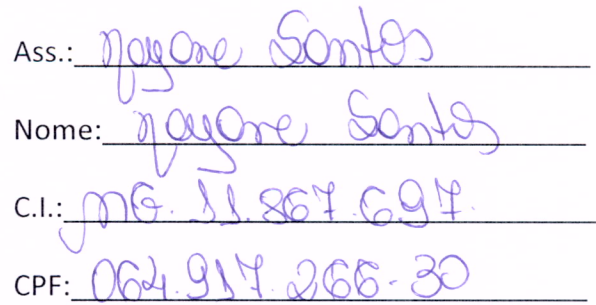 Ass.: Nayane Santos
Nome: Nayane Santos
C.I.: MG. 11.867.697.
CPF: 064.917.266-30